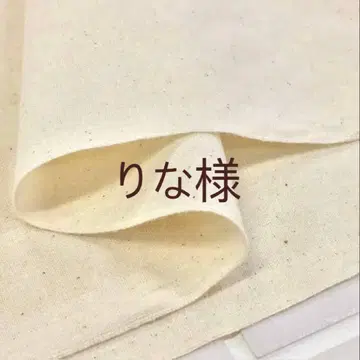 りな様